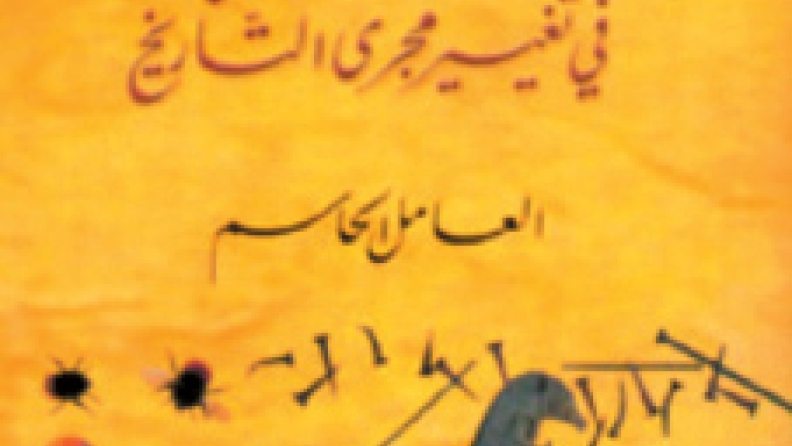 في تغيير مجرى التاريخ
العامل الحاسم